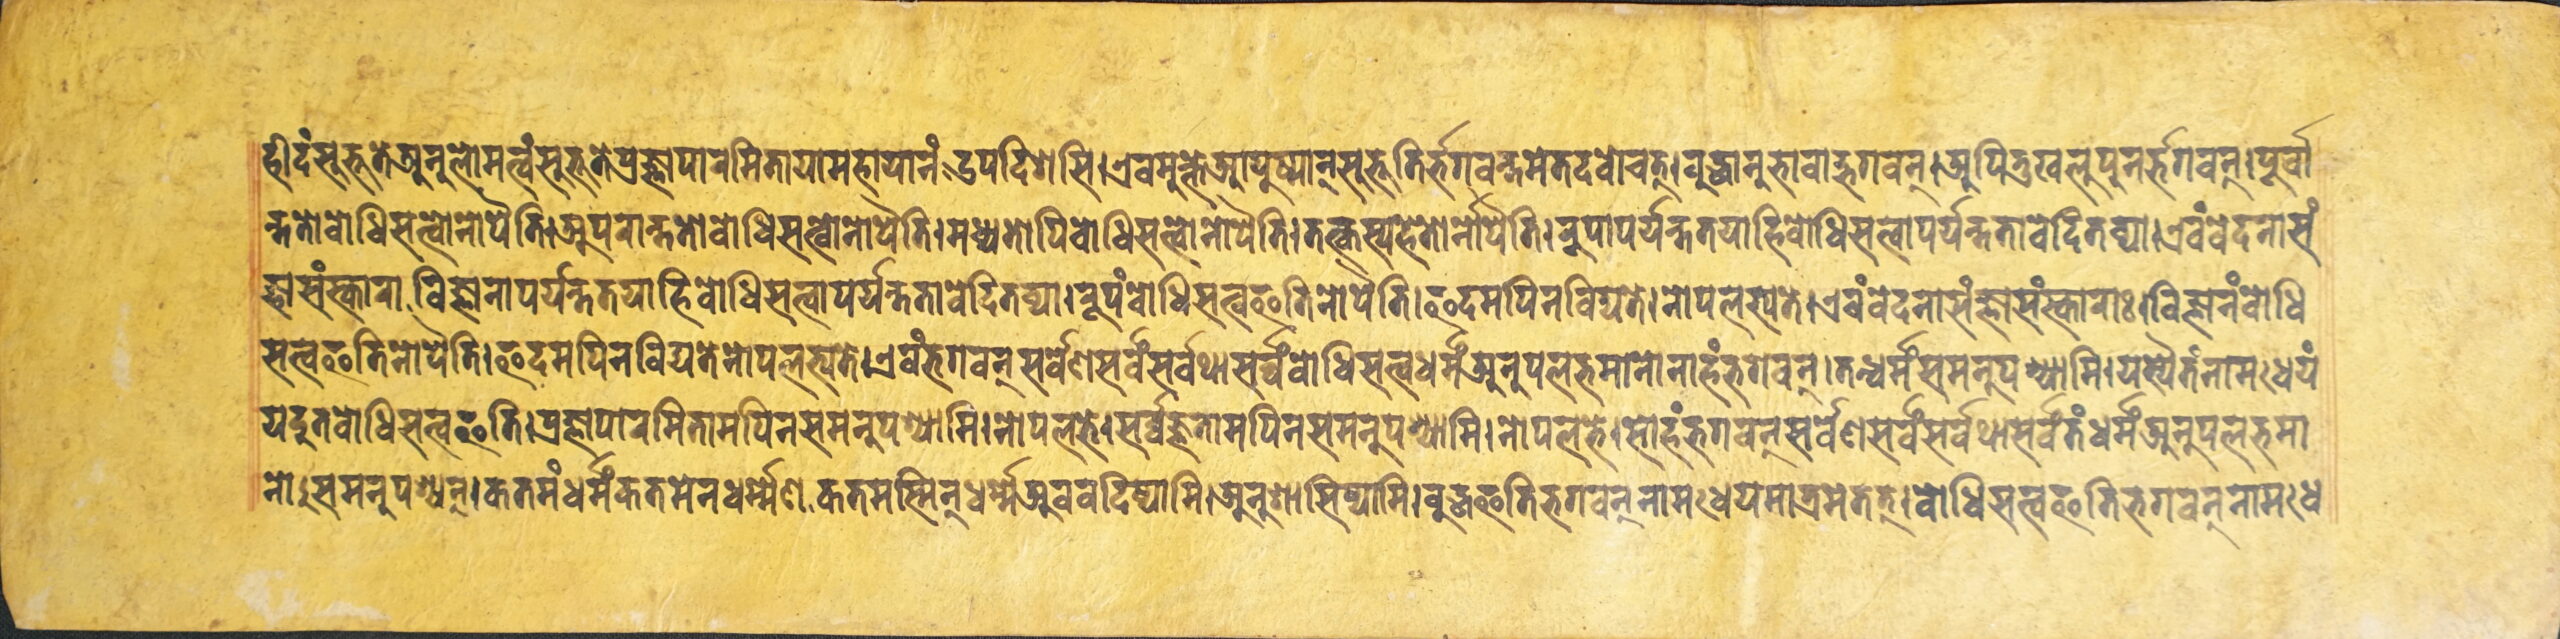 हीदंसुभूतेअनुलोमत्वंसुभूतेप्रज्ञापारमितायामहायानंउपदिशसि।एवमुक्तेआयुष्मान्सुभूतिर्भगवन्तमेतदवोचत्।बुद्धानुभावाद्भगवन्।अपितुखलुपुनर्भगवन्।पूर्वा
न्ततोबोधिसत्वोनोपैति।अपरान्ततोबोधिसत्वोनोपैति।मध्यतोपिबोधिसत्वोनोपैति।तत्कस्यहेतोर्नोपैति।रूपापर्यन्ततयाहिबोधिसत्वापर्यन्ततावेदितव्या।एवंवेदनासं
ज्ञासंस्कारा,विज्ञानापर्यन्ततयाहिबोधिसत्वापर्यन्ततावेदितव्या।रूपंबोधिसत्वइतिनोपैति।इदमपिनविद्यते।नोपलभ्यते।एवंवेदनासंज्ञासंस्काराः।विज्ञानंबोधि
सत्वइतिनोपैति।इदमपिनविद्यतेनोपलभ्यते।एवंभगवन्सर्वेणसर्वंसर्वथासर्व्वंबोधिसत्वधर्मंअनुपलभमानोनाहंभगवन्।तन्धर्मंसमनुपश्यामि।यस्यैतंनामधेयं
यदुतबोधिसत्वइति।प्रज्ञापारमितामपिनसमनुपश्यामि।नोपलभे।सर्व्वज्ञतामपिनसमनुपश्यामि।नोपलभे।सोहंभगवन्सर्वेणसर्वंसर्वथासर्वंतंधर्मंअनुपलभमा
नो,समनुपश्यन्।कतमंधर्मंकतमेनधर्म्मेण,कतमस्मिन्धर्म्मेअववदिष्यामि।अनुशासिष्यामि।बुद्धइतिभगवन्नामधेयमात्रमेतत्।बोधिसत्वइतिभगवन्नामधे